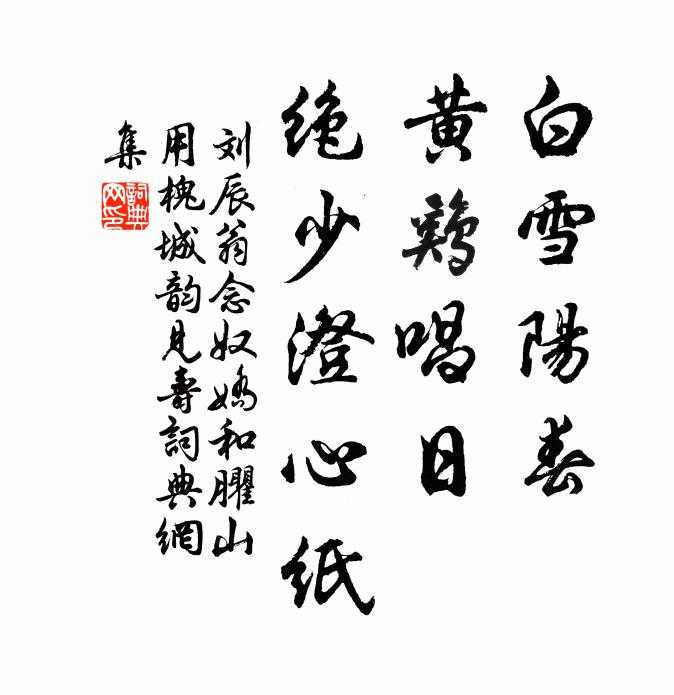 白雪陽春
黄鷄唱日
绝少澄心紙
刘辰翁念奴嬌和臞山
用槐城韵見壽詞典網
集
詞典
网印